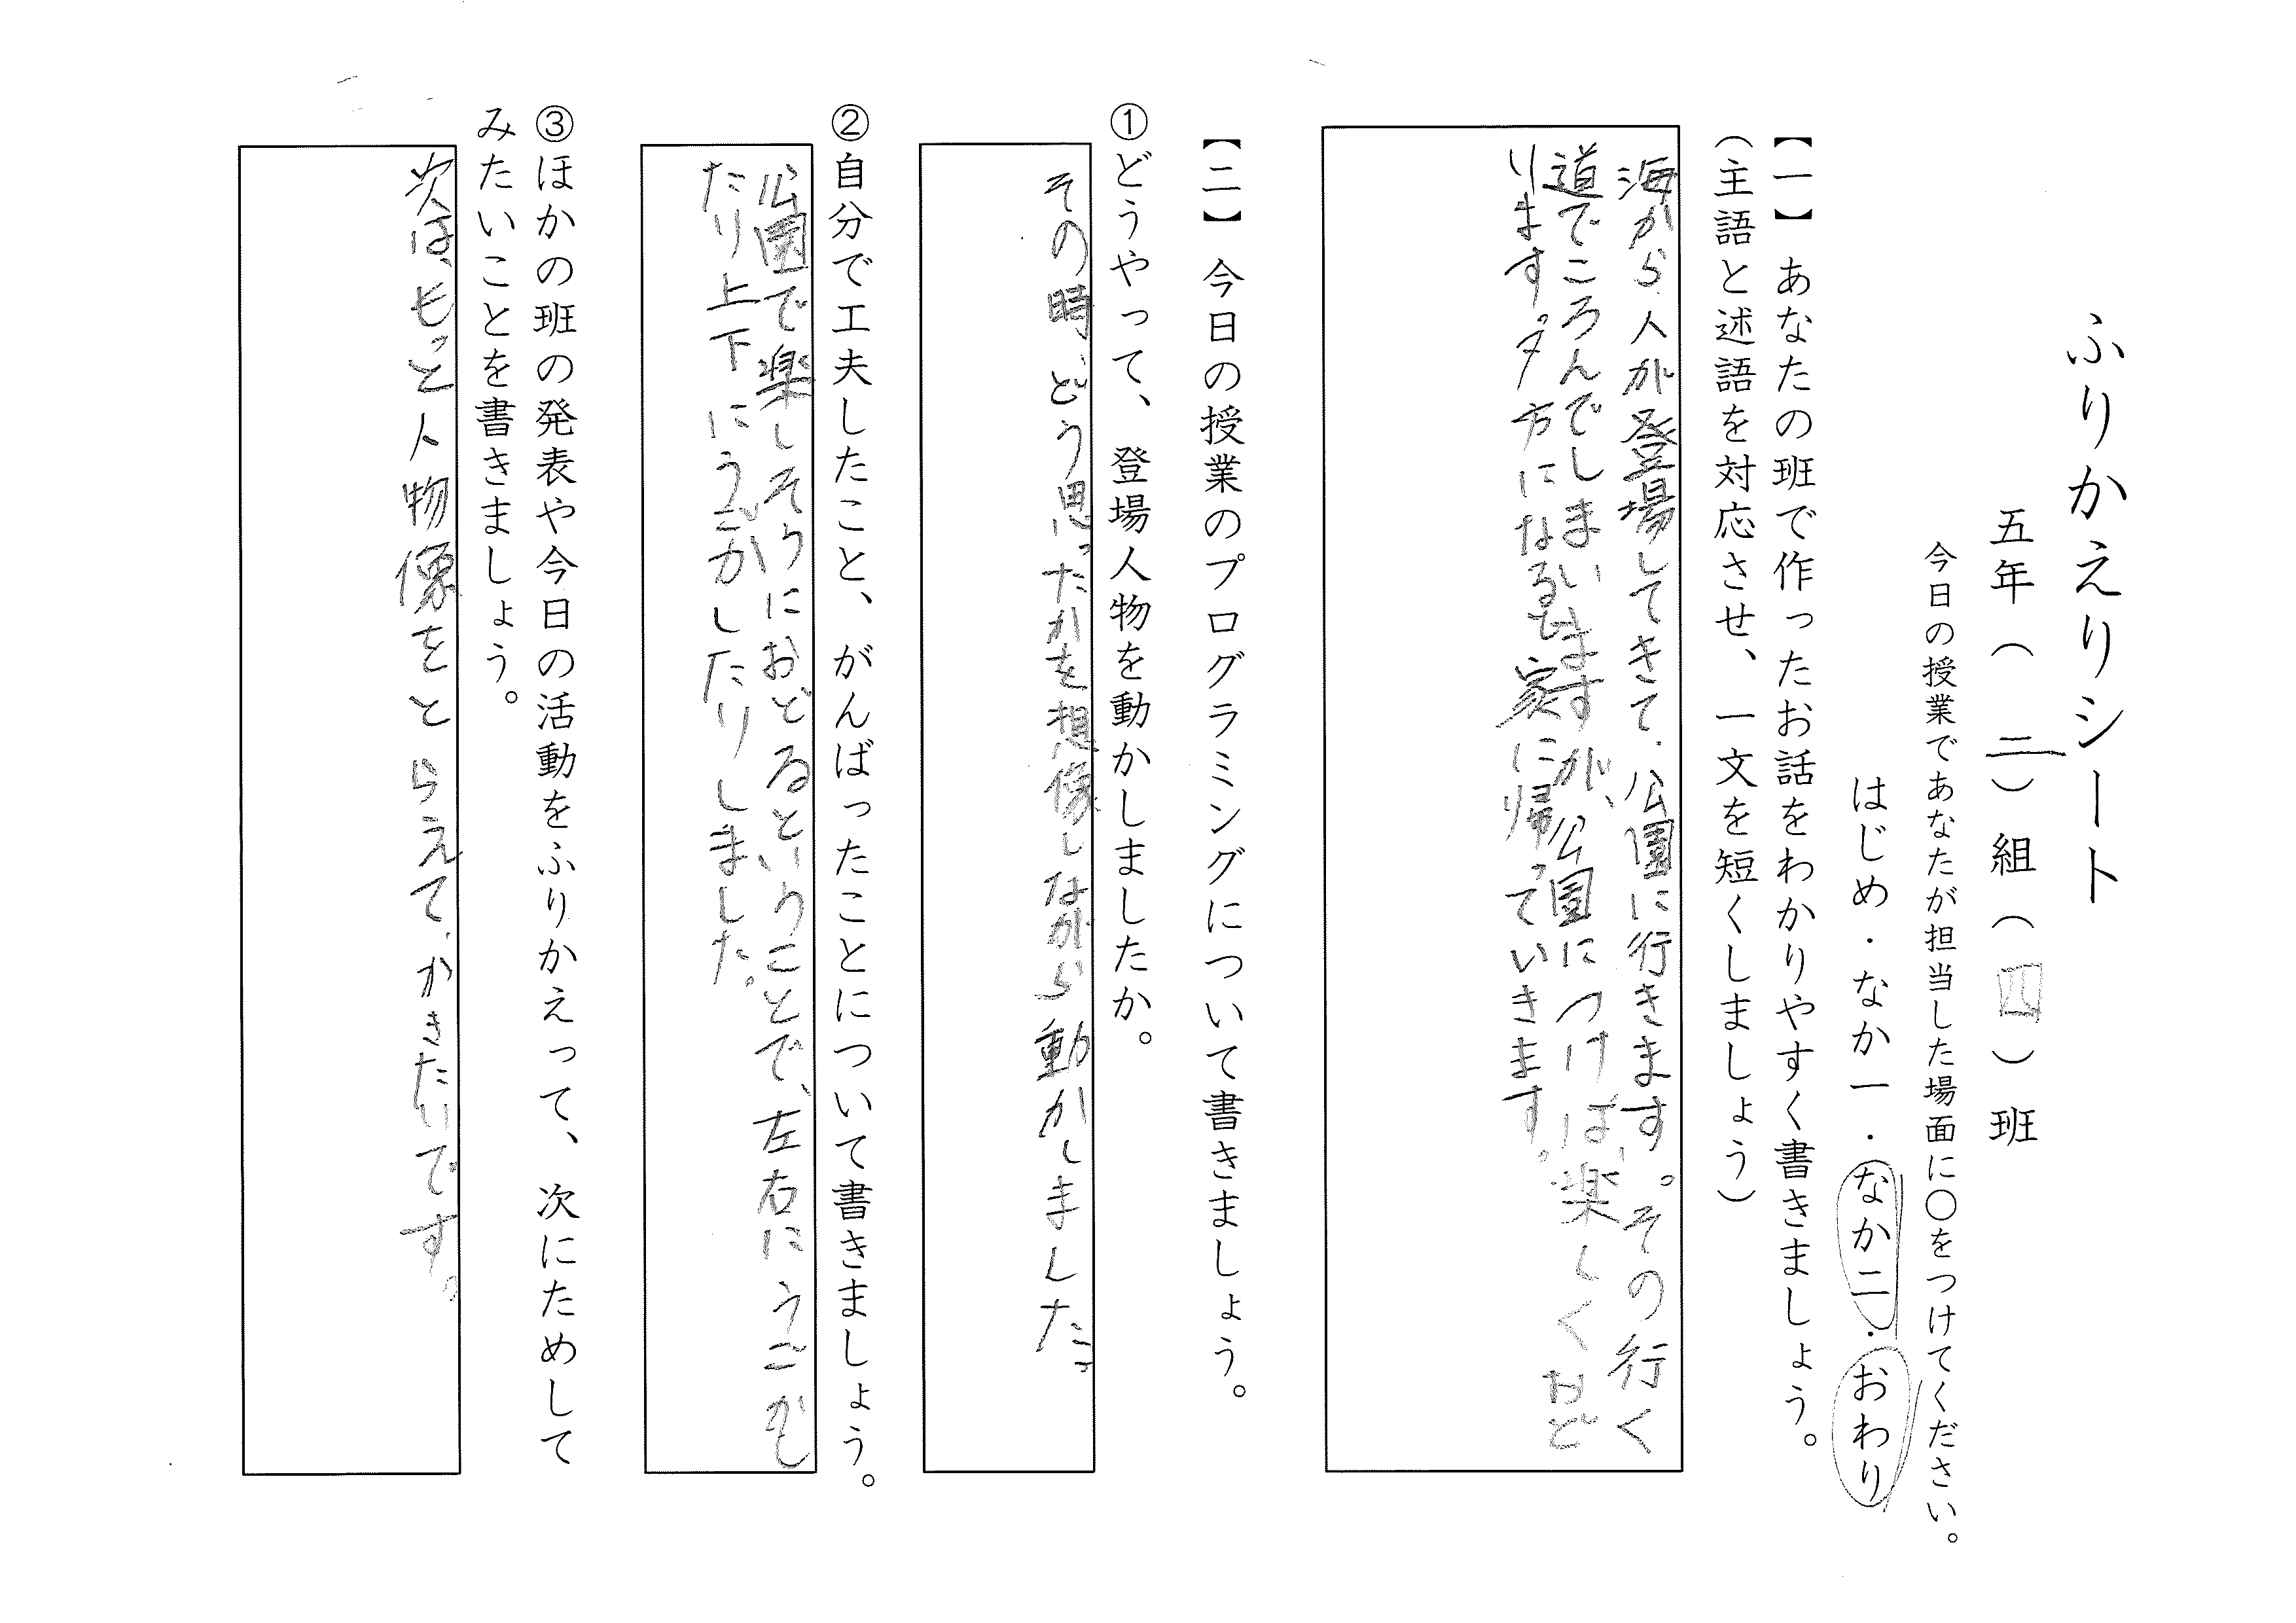 ふりかえりシート
五年（二）組（四）班
今日の授業であなたが担当した場面に〇をつけてください。
はじめ・なか一・なか二・おわり
【一】あなたの班で作ったお話をわかりやすく書きましょう。
（主語と述語を対応させ、一文を短くしましょう）
海から人が登場してきて、公園に行きます。その行く
道でころんでしまいますが、公園につけば、楽しくおど
ります。夕方になると家に帰っていきます。
【二】今日の授業のプログラミングについて書きましょう。
①どうやって、登場人物を動かしましたか。
その時、どう思ったかを想像しながら動かしました。
②自分で工夫したこと、がんばったことについて書きましょう。
公園で楽しそうにおどるということで、左右にうごかし
たり上下にうごかしたりしました。
③ほかの班の発表や今日の活動をふりかえって、次にためして
みたいことを書きましょう。
次は、もっと人物像をとらえて、かきたいです。